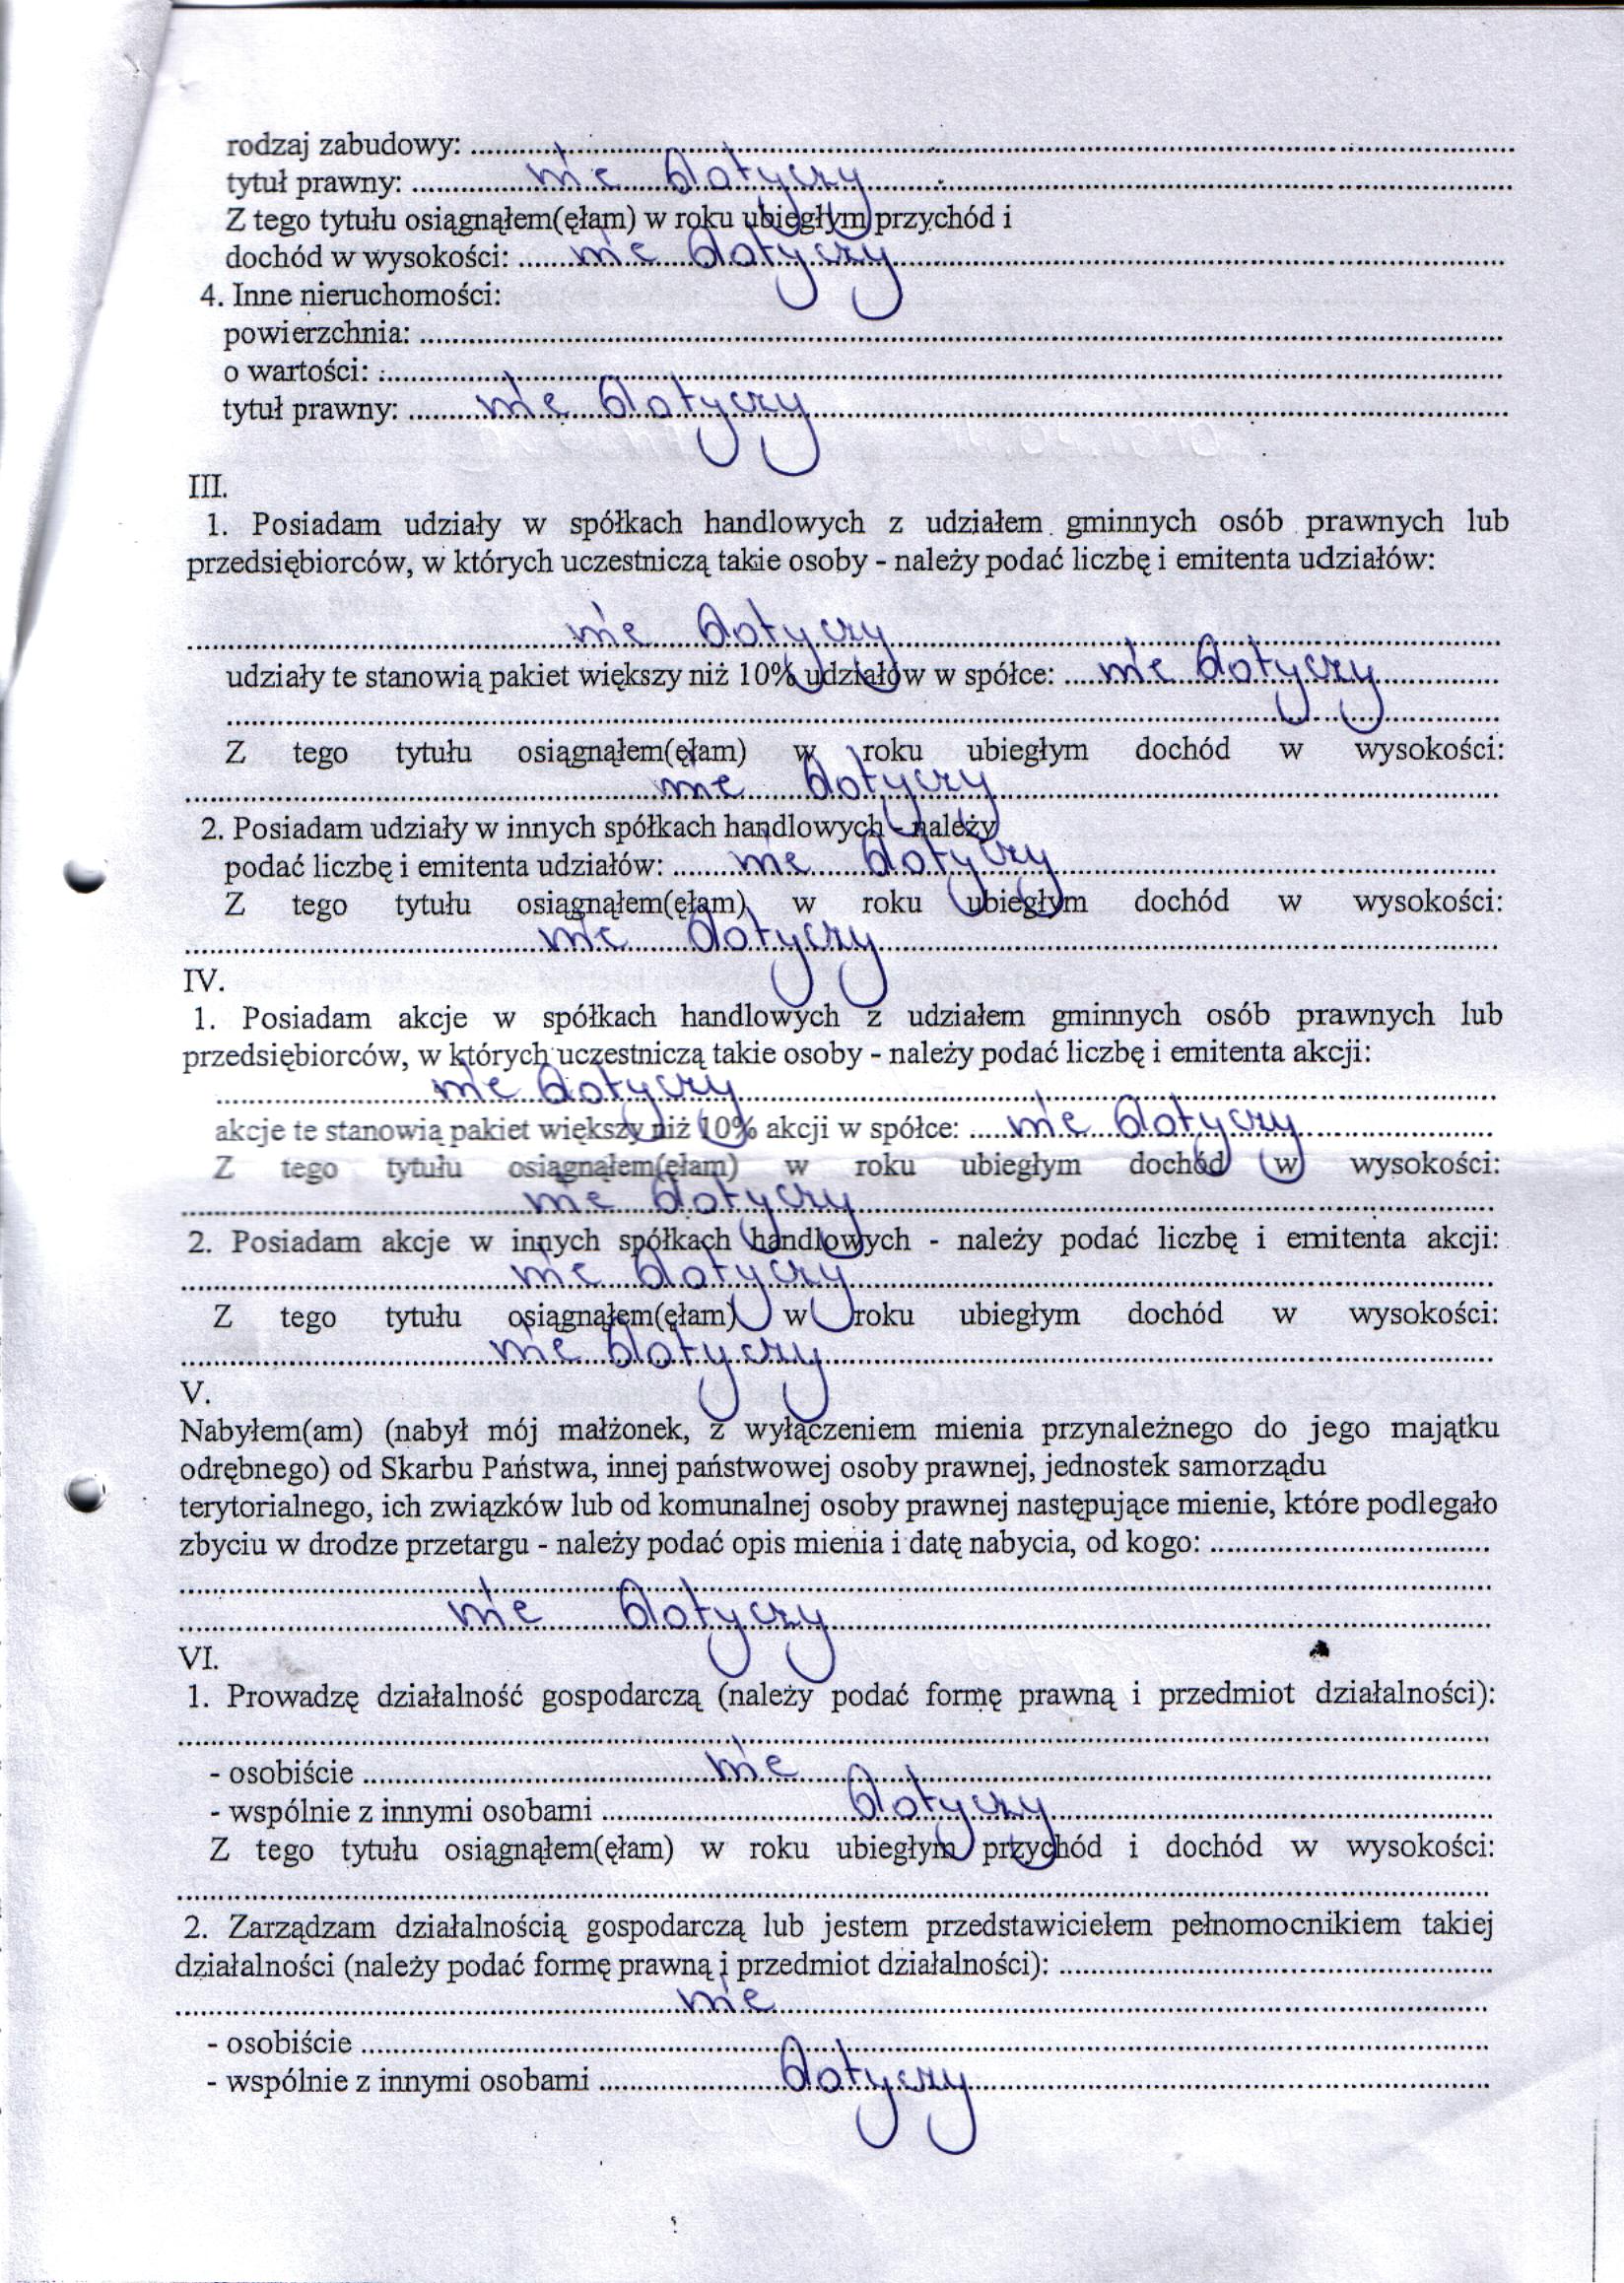 rodzaj zabudowy: ..........
tytuł prawny: .......... nie dotyczy ..........
Z tego tytułu osiągnąłem(ęłam) w roku ubiegłym przychód i
dochód w wysokości: .......... nie dotyczy ..........
4. Inne nieruchomości:
powierzchnia: ..........
o wartości: ..........
tytuł prawny: .......... nie dotyczy ..........
III.
1. Posiadam udziały w spółkach handlowych z udziałem gminnych osób prawnych lub
przedsiębiorców, w których uczestniczą takie osoby - należy podać liczbę i emitenta udziałów:
.......... nie dotyczy ..........
udziały te stanowią pakiet większy niż 10% udziałów w spółce: ..... nie dotyczy ..........
..........
Z tego tytułu osiągnąłem(ęłam) w roku ubiegłym dochód w wysokości:
.......... nie dotyczy ..........
2. Posiadam udziały w innych spółkach handlowych - należy
podać liczbę i emitenta udziałów: .......... nie dotyczy ..........
Z tego tytułu osiągnąłem(ęłam) w roku ubiegłym dochód w wysokości:
.......... nie dotyczy ..........
IV.
1. Posiadam akcje w spółkach handlowych z udziałem gminnych osób prawnych lub
przedsiębiorców, w których uczestniczą takie osoby - należy podać liczbę i emitenta akcji:
.......... nie dotyczy ..........
akcje te stanowią pakiet większy niż 10% akcji w spółce: ..... nie dotyczy ..........
Z tego tytułu osiągnąłem(ęłam) w roku ubiegłym dochód w wysokości:
.......... nie dotyczy ..........
2. Posiadam akcje w innych spółkach handlowych - należy podać liczbę i emitenta akcji:
.......... nie dotyczy ..........
Z tego tytułu osiągnąłem(ęłam) w roku ubiegłym dochód w wysokości:
.......... nie dotyczy ..........
V.
Nabyłem(am) (nabył mój małżonek, z wyłączeniem mienia przynależnego do jego majątku
odrębnego) od Skarbu Państwa, innej państwowej osoby prawnej, jednostek samorządu
terytorialnego, ich związków lub od komunalnej osoby prawnej następujące mienie, które podlegało
zbyciu w drodze przetargu - należy podać opis mienia i datę nabycia, od kogo: ..........
..........
.......... nie dotyczy ..........
VI.
1. Prowadzę działalność gospodarczą (należy podać formę prawną i przedmiot działalności):
..........
- osobiście .......... nie ..........
- wspólnie z innymi osobami .......... dotyczy ..........
Z tego tytułu osiągnąłem(ęłam) w roku ubiegłym przychód i dochód w wysokości:
..........
2. Zarządzam działalnością gospodarczą lub jestem przedstawicielem pełnomocnikiem takiej
działalności (należy podać formę prawną i przedmiot działalności): ..........
.......... nie ..........
- osobiście ..........
- wspólnie z innymi osobami .......... dotyczy ..........